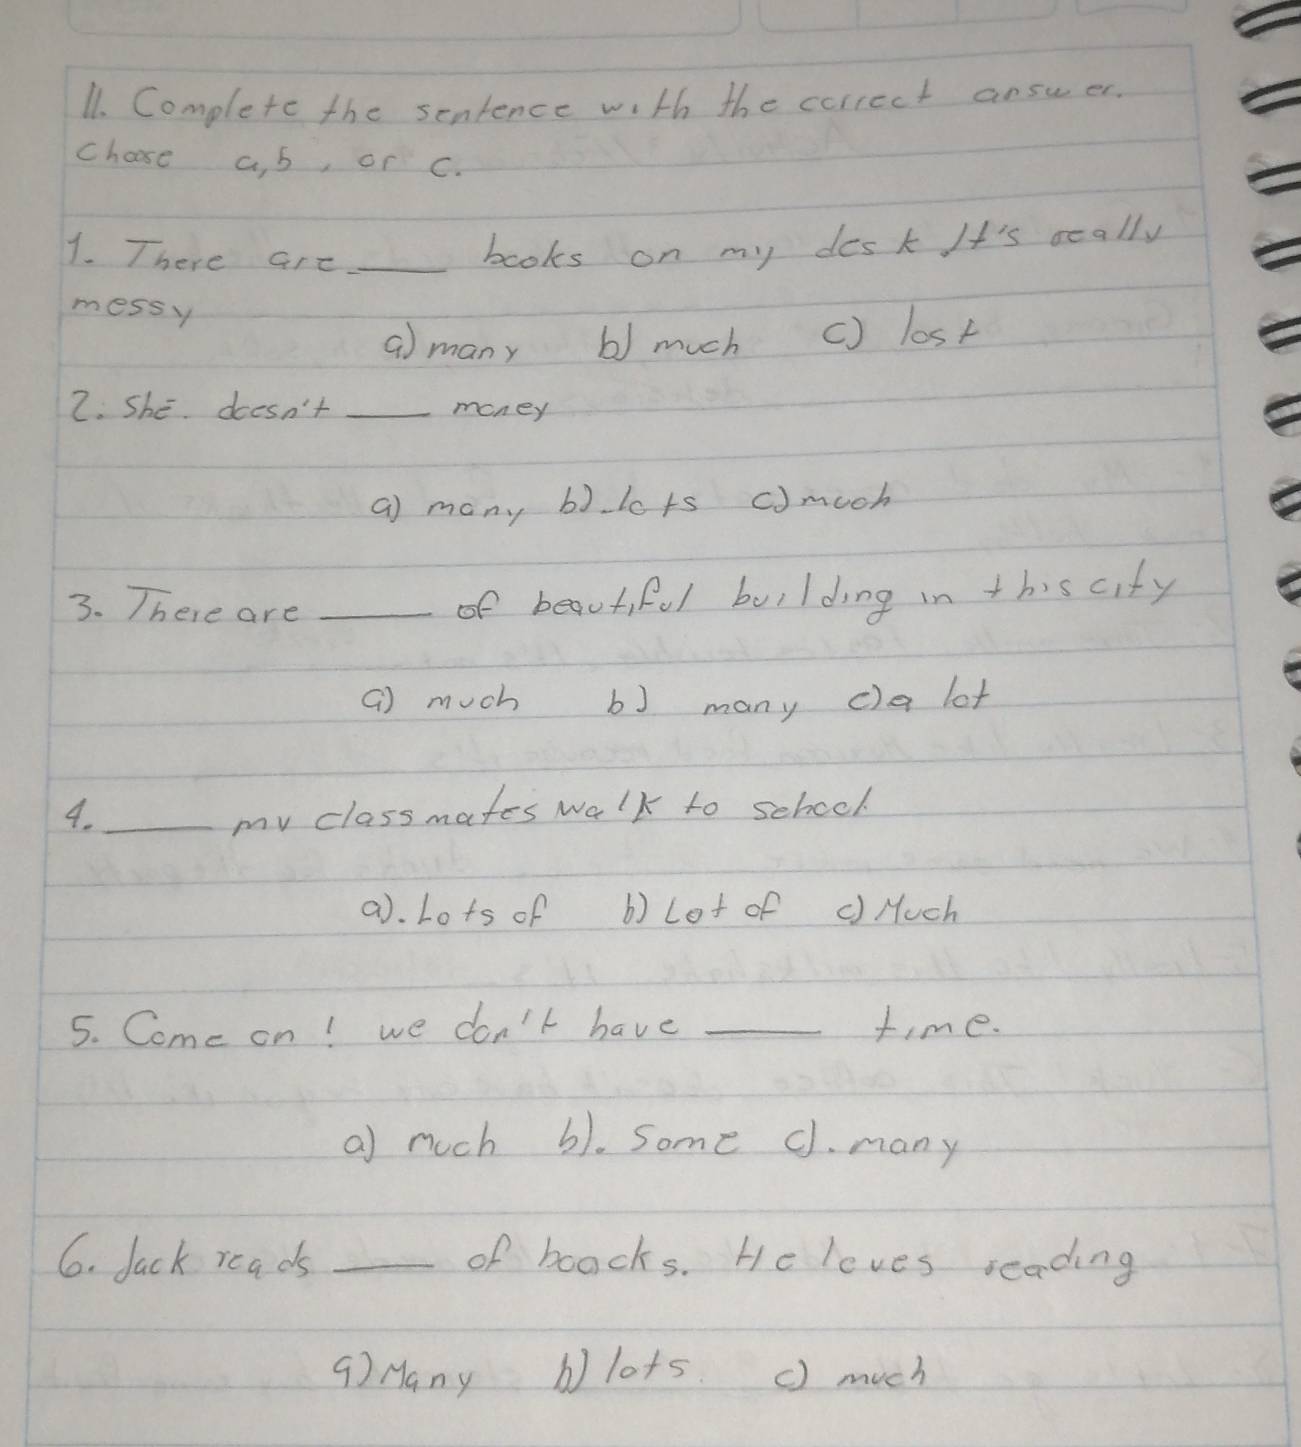 II. Complete the sentence with the correct answer.
Choose a, b, or c.
1. There are ____ books on my desk. It's really
messy
a) many b) much c) lost
2. She. doesn't ____ money
a) many b). lots c) much
3. There are ____ of beautiful building in this city
a) much b) many c) a lot
4. ____ my classmates walk to school
a). Lots of b) Lot of c) Much
5. Come on! we don't have ____ time.
a) much b). Some c). many
6. Jack reads ____ of boocks. He loves reading
a) Many b) lots. c) much